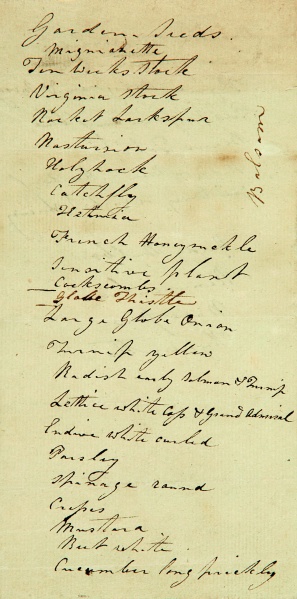 Garden Seeds.
Mignianette
Ten Weeks Stock
Virginia Stock
Rocket Larkspur
Nasturion
Holyhock
Catchfly
French Honeysuckle
Sensitive plant
Cockscombs
Globe Thistle
Large Globe Onion
Turnip yellow
Radish early Salmon & Turnip
Lettice white Coss & Grand Admiral
Endive white curled
Parsley
Spinage round
Cresses
Mustard
Beet white
Cucumber long prickly
Balsam